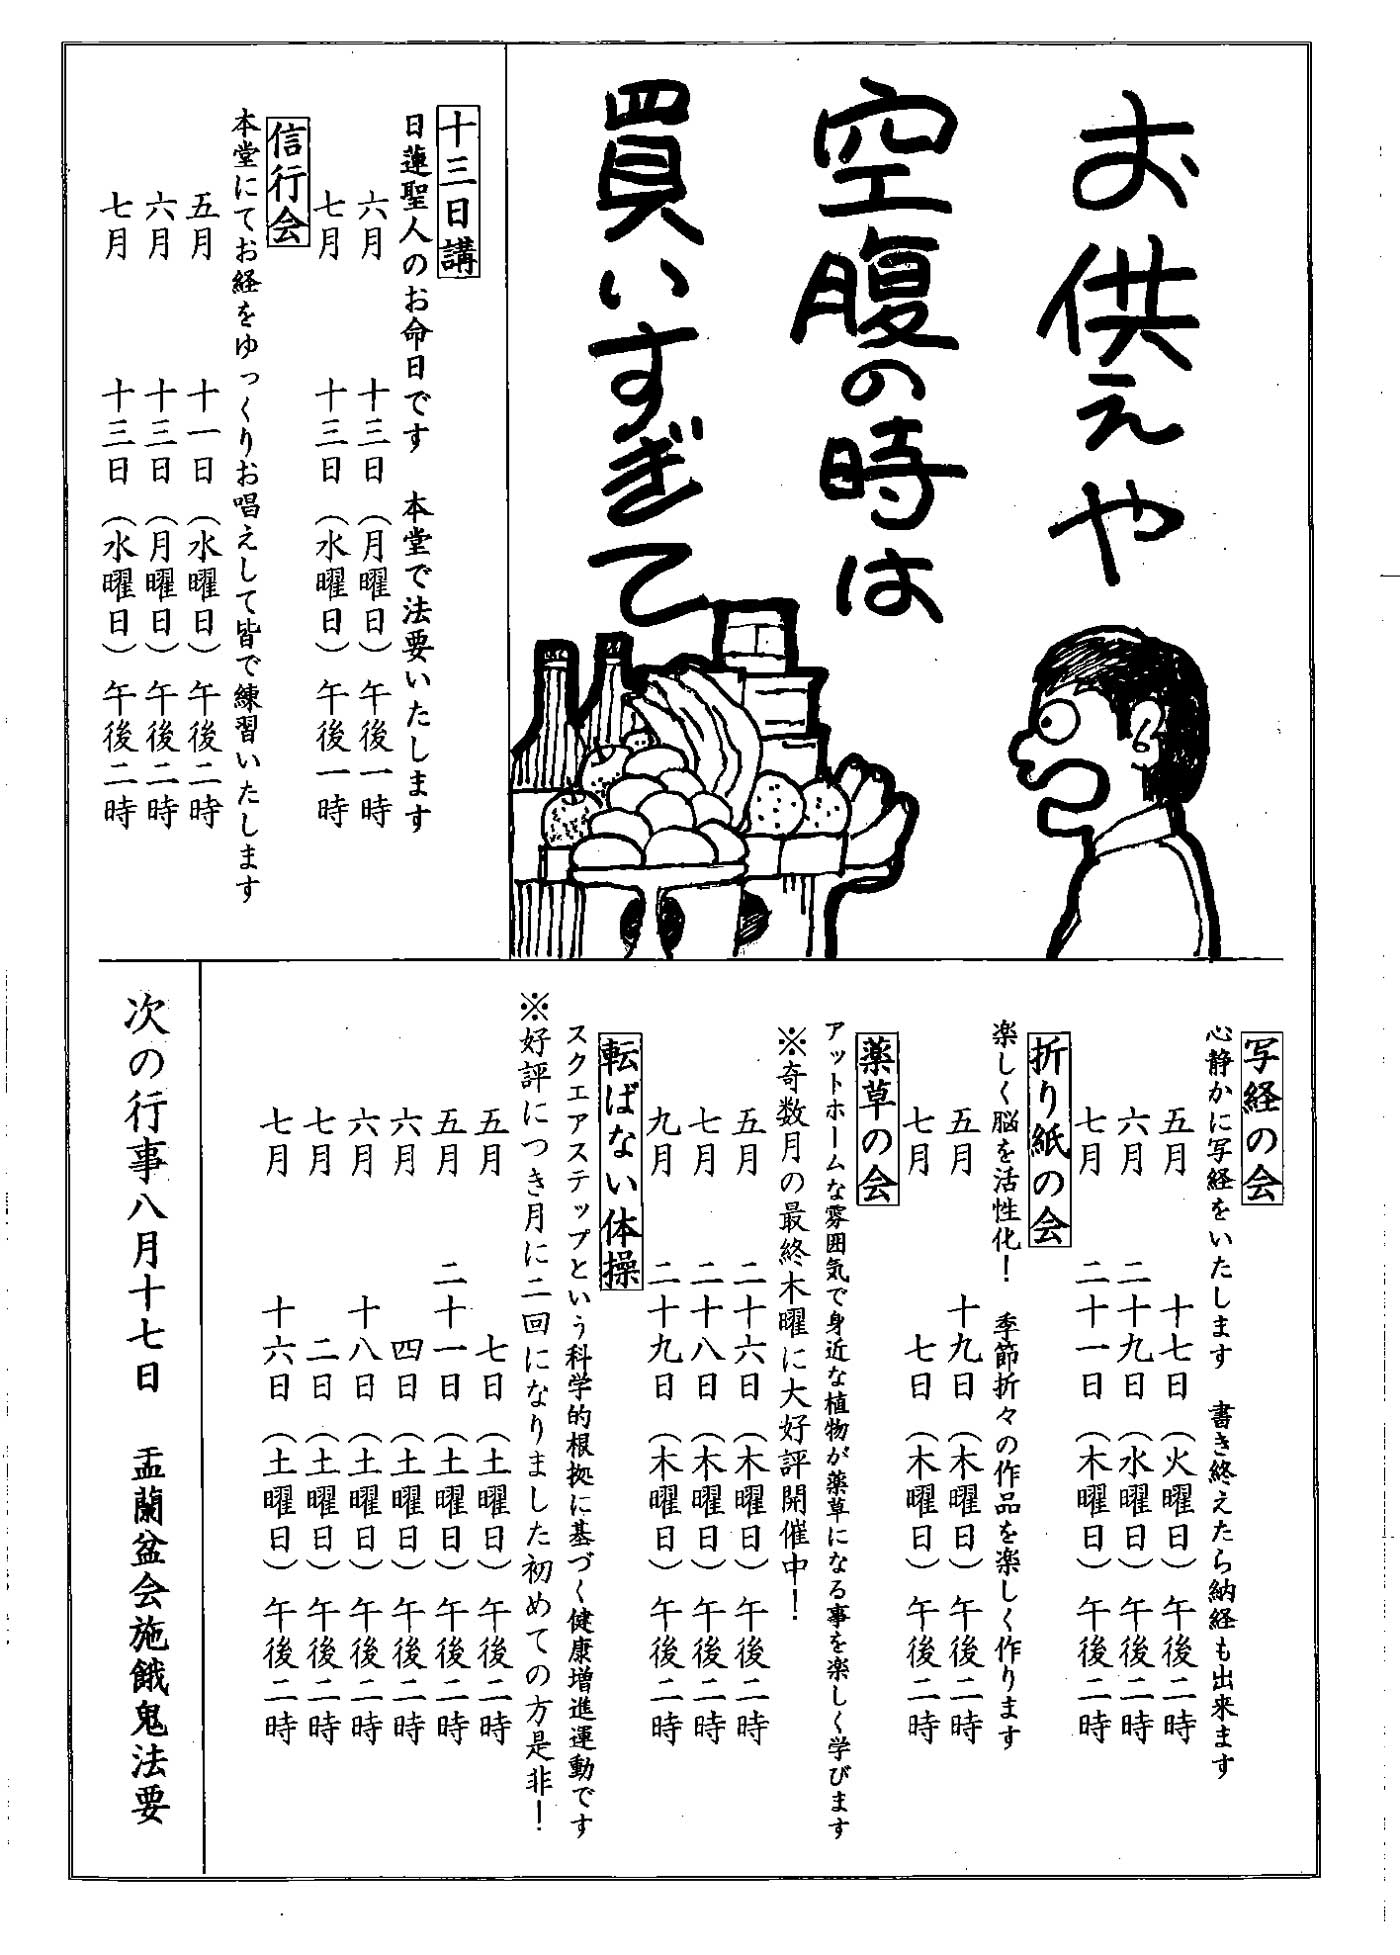 お供えや
空腹の時は
買いすぎて
十三日講
日蓮聖人のお命日です 本堂で法要いたします
六月 十三日（月曜日）午後一時
七月 十三日（水曜日）午後一時
信行会
本堂にてお経をゆっくりお唱えして皆で練習いたします
五月 十一日（水曜日）午後二時
六月 十三日（月曜日）午後二時
七月 十三日（水曜日）午後二時
写経の会
心静かに写経をいたします 書き終えたら納経も出来ます
五月 十七日（火曜日）午後二時
六月 二十九日（水曜日）午後二時
七月 二十一日（木曜日）午後二時
折り紙の会
楽しく脳を活性化！ 季節折々の作品を楽しく作ります
五月 十九日（木曜日）午後二時
七月 七日（木曜日）午後二時
薬草の会
アットホームな雰囲気で身近な植物が薬草になる事を楽しく学びます
※奇数月の最終木曜に大好評開催中！
五月 二十六日（木曜日）午後二時
七月 二十八日（木曜日）午後二時
九月 二十九日（木曜日）午後二時
転ばない体操
スクエアステップという科学的根拠に基づく健康増進運動です
※好評につき月に二回になりました初めての方是非！
五月 七日（土曜日）午後二時
五月 二十一日（土曜日）午後二時
六月 四日（土曜日）午後二時
六月 十八日（土曜日）午後二時
七月 二日（土曜日）午後二時
七月 十六日（土曜日）午後二時
次の行事八月十七日 盂蘭盆会施餓鬼法要